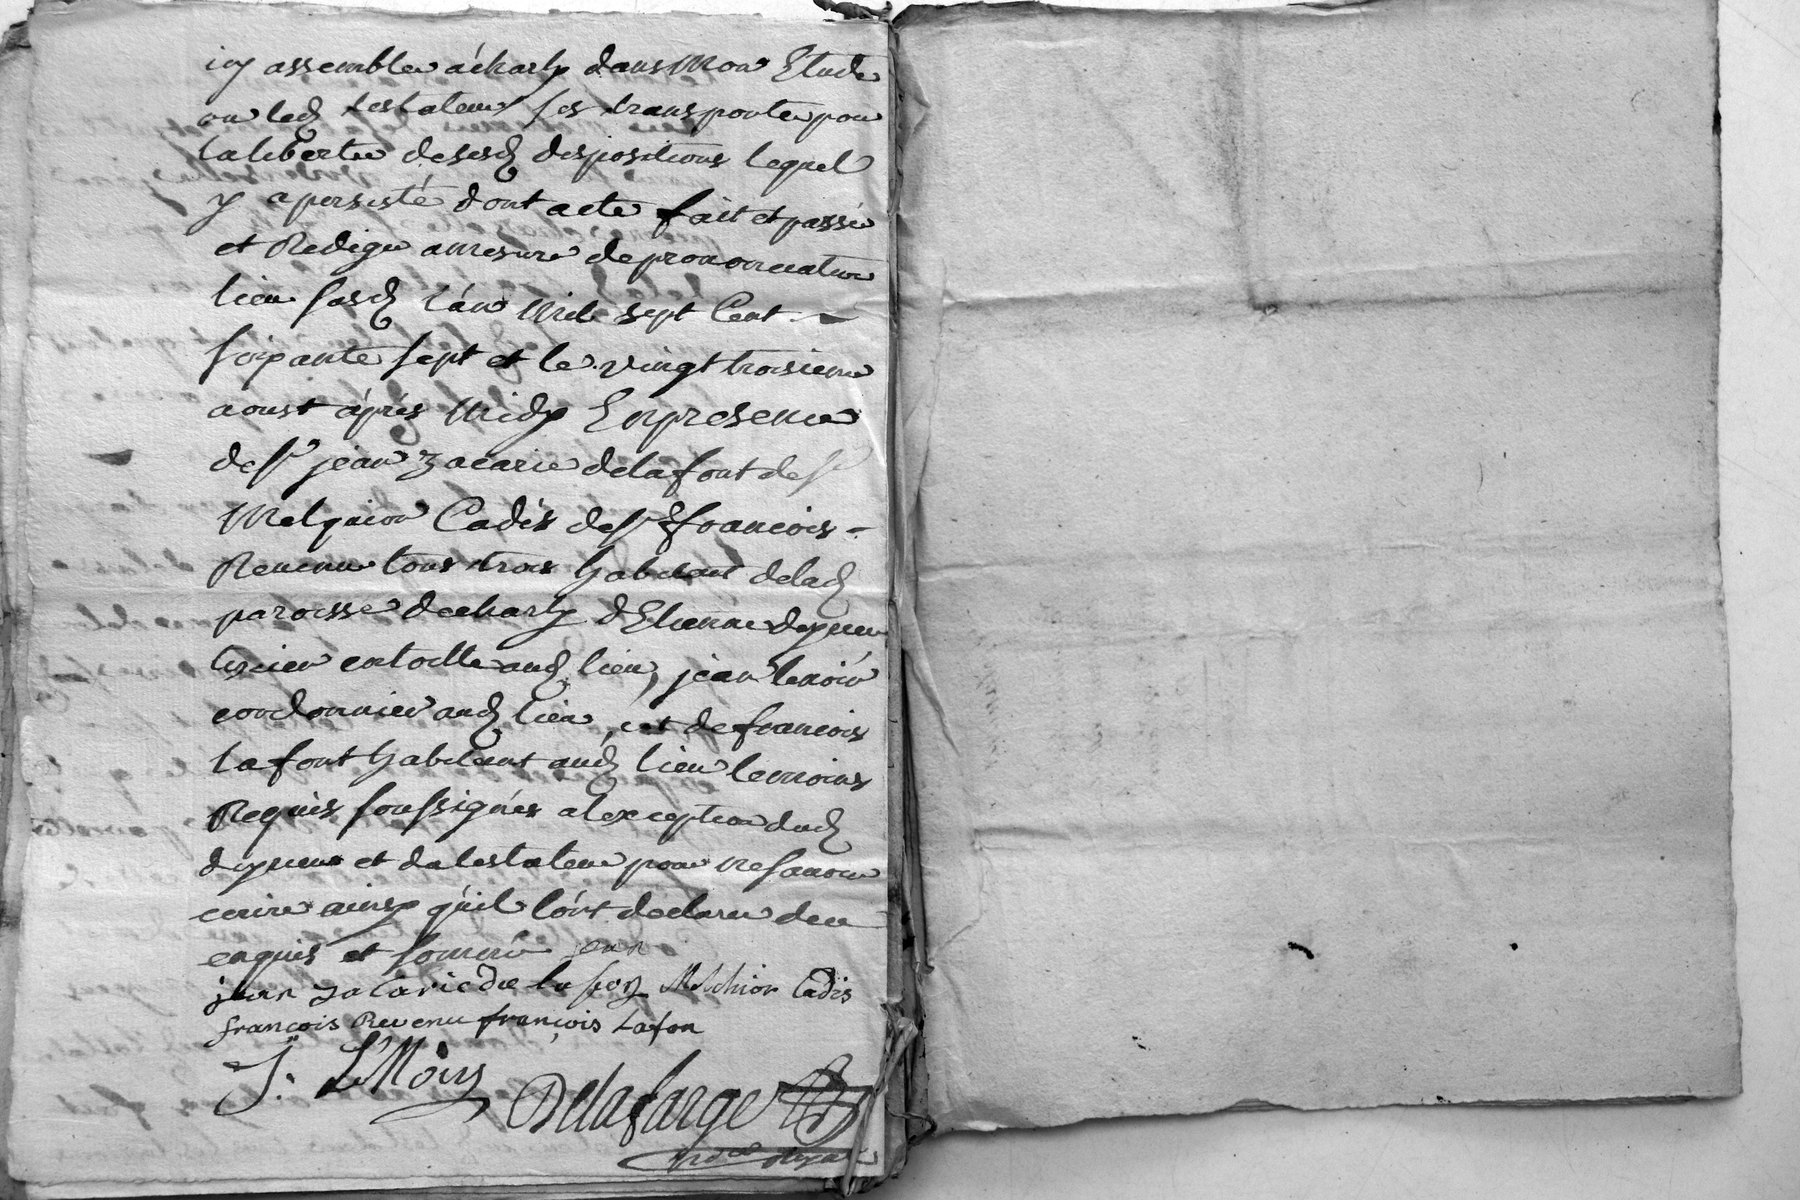 icy assemblés a charly dans mon Etude
ou led testateur ses transporté pour
la liberté de sesd dispositions lequel
y a persisté dont acte fait et passé
et Redigé a mesure de prononciation
lieu susd l'an Mil sept Cent
soixante sept et le vingt troisieme
aoust après Midy En presence
de sr jean zacarie delafont de sr
Melquior Cadis de sr francois
Revenu tous trois habitant de lad
paroisse de charly d'Etienne
tixier en toille aud lieu, jean lenoir
cordonnier aud lieu, et de francois
Lafont habitant aud lieu temoins
Requis soussignés a l'exception dud
et du testateur pour ne savoir
ecrire ainsy qu'il l'ont declaré de ce
enquis et sommé
jean zacarie de la fon Melchior Cadis
francois Revenu françois Lafon
J. Delafarge